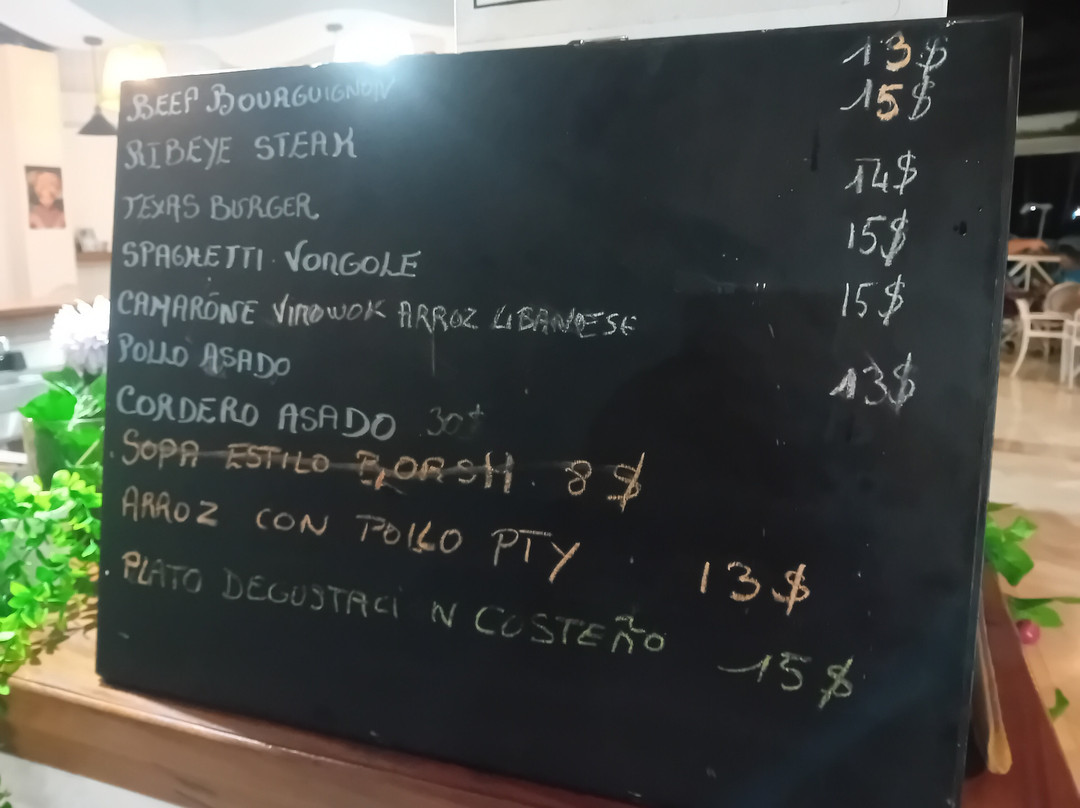 BEEF BOURGUIGNON 13$
RIBEYE STEAK 15$
TEXAS BURGER 14$
SPAGHETTI VONGOLE 15$
CAMARÓNE VINOWOK ARROZ LIBANESE 15$
POLLO ASADO 13$
CORDERO ASADO 30$
SOPA ESTILO BORSH 8$
ARROZ CON POLLO PTY 13$
PLATO DEGUSTACI N COSTEÑO 15$